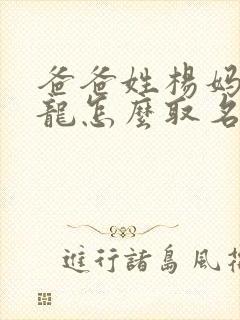 爸爸姓楊媽
龍怎麼取名
進行諸島風